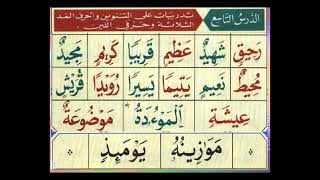 الدرس التاسع
تدريبات على التنوين وأحرف المد
الثلاثة وحرفي اللين
رَحِيقٍ شَهِيدٌ عَظِيمٍ قَرِيبًا كَرِيمٍ مَجِيدٌ
مُحِيطٌ نَعِيمٍ يَتِيمًا يَسِيرًا رُوَيْدًا قُرَيْشٍ
عِيشَةٍ اَلْمَوْءُدَةُ مَوْضُوعَةٌ
مَوَازِينُهُ يَوْمَئِذٍ